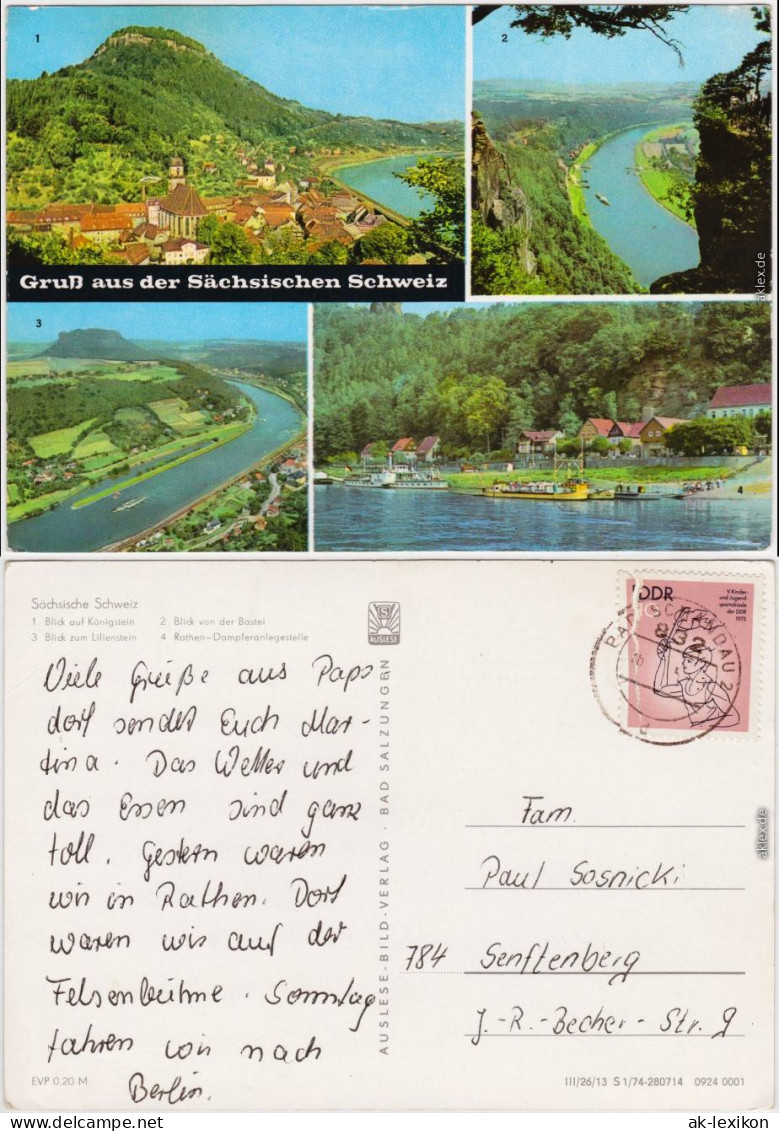 1
2
Gruß aus der Sächsischen Schweiz
3
4
aklex.de
Sächsische Schweiz
1 Blick auf Königstein 2 Blick von der Bastei
3 Blick zum Lilienstein 4 Rathen—Dampferanlegestelle
S
AUSLESE
DDR
V. Kinder-
und Jugend-
spartakiade
der DDR
1975
BAD SCHANDAU 2
832
Viele Grüße aus Paps
dorf sendet Euch Mar-
tina. Das Wetter und
das Essen sind ganz
toll. Gestern waren
wir in Rathen. Dort
waren wir auf der
Felsenbühne. Sonntag
fahren wir nach
Berlin.
AUSLESE-BILD-VERLAG · BAD SALZUNGEN
Fam.
Paul Sosnicki
784 Senftenberg
J.-R.-Becher-Str. 9
aklex.de
EVP 0,20 M
III/26/13 S 1/74-280714 0924 0001
ak-lexikon